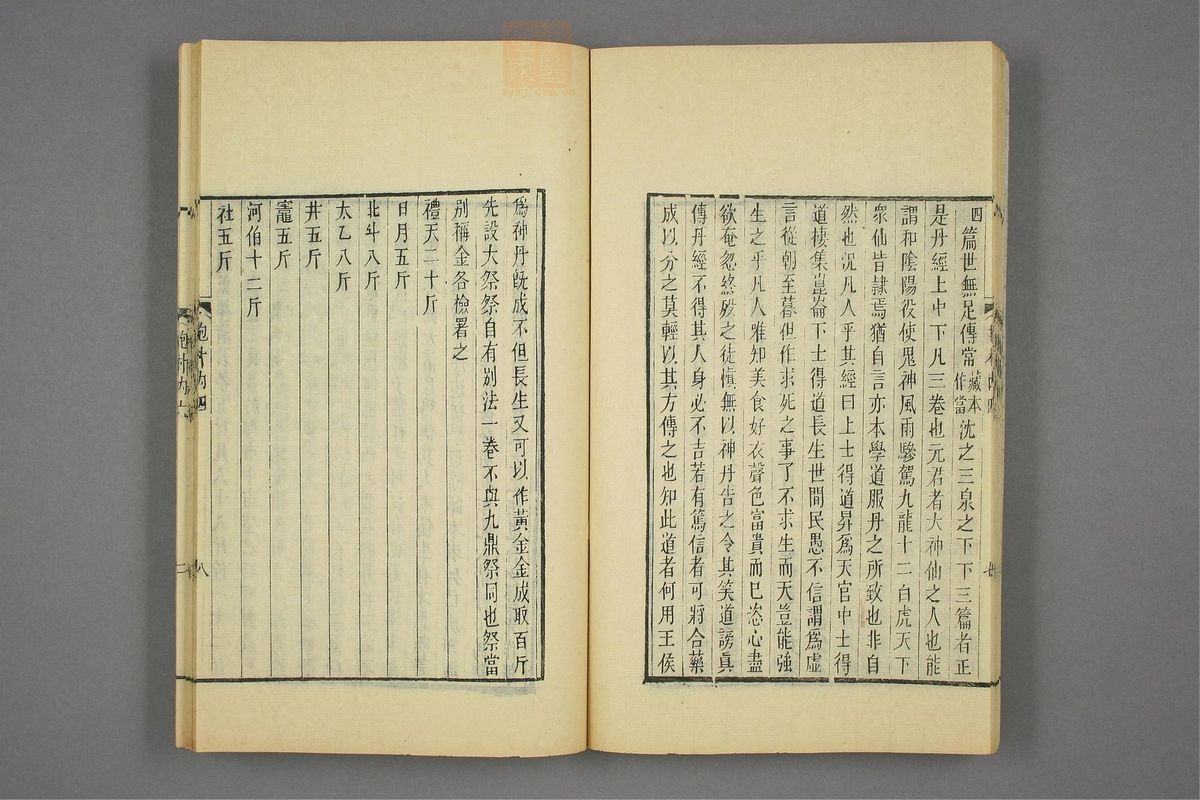 四篇世無足傳常藏本作當沈之三泉之下下三篇者正
是丹經上中下凡三卷也元君者大神仙之人也能
調和陰陽役使鬼神風雨驂駕九龍十二白虎天下
衆仙皆隸焉猶自言亦本學道服丹之所致也非自
然也況凡人乎其經曰上士得道昇爲天官中士得
道棲集崑崙下士得道長生世間民愚不信謂爲虛
言從朝至暮但作求死之事了不求生而天豈能強
生之乎凡人唯知美食好衣聲色富貴而已恣心盡
欲奄忽終歿之徒慎無以神丹告之令其笑道謗眞
傳丹經不得其人身必不吉若有篤信者可將合藥
成以分之莫輕以其方傳之也知此道者何用王侯
爲神丹旣成不但長生又可以作黃金金成取百斤
先設大祭祭自有别法一卷不與九鼎祭同也祭當
别稱金各檢署之
禮天二十斤
日月五斤
北斗八斤
太乙八斤
井五斤
竈五斤
河伯十二斤
社五斤
抱朴内四
八